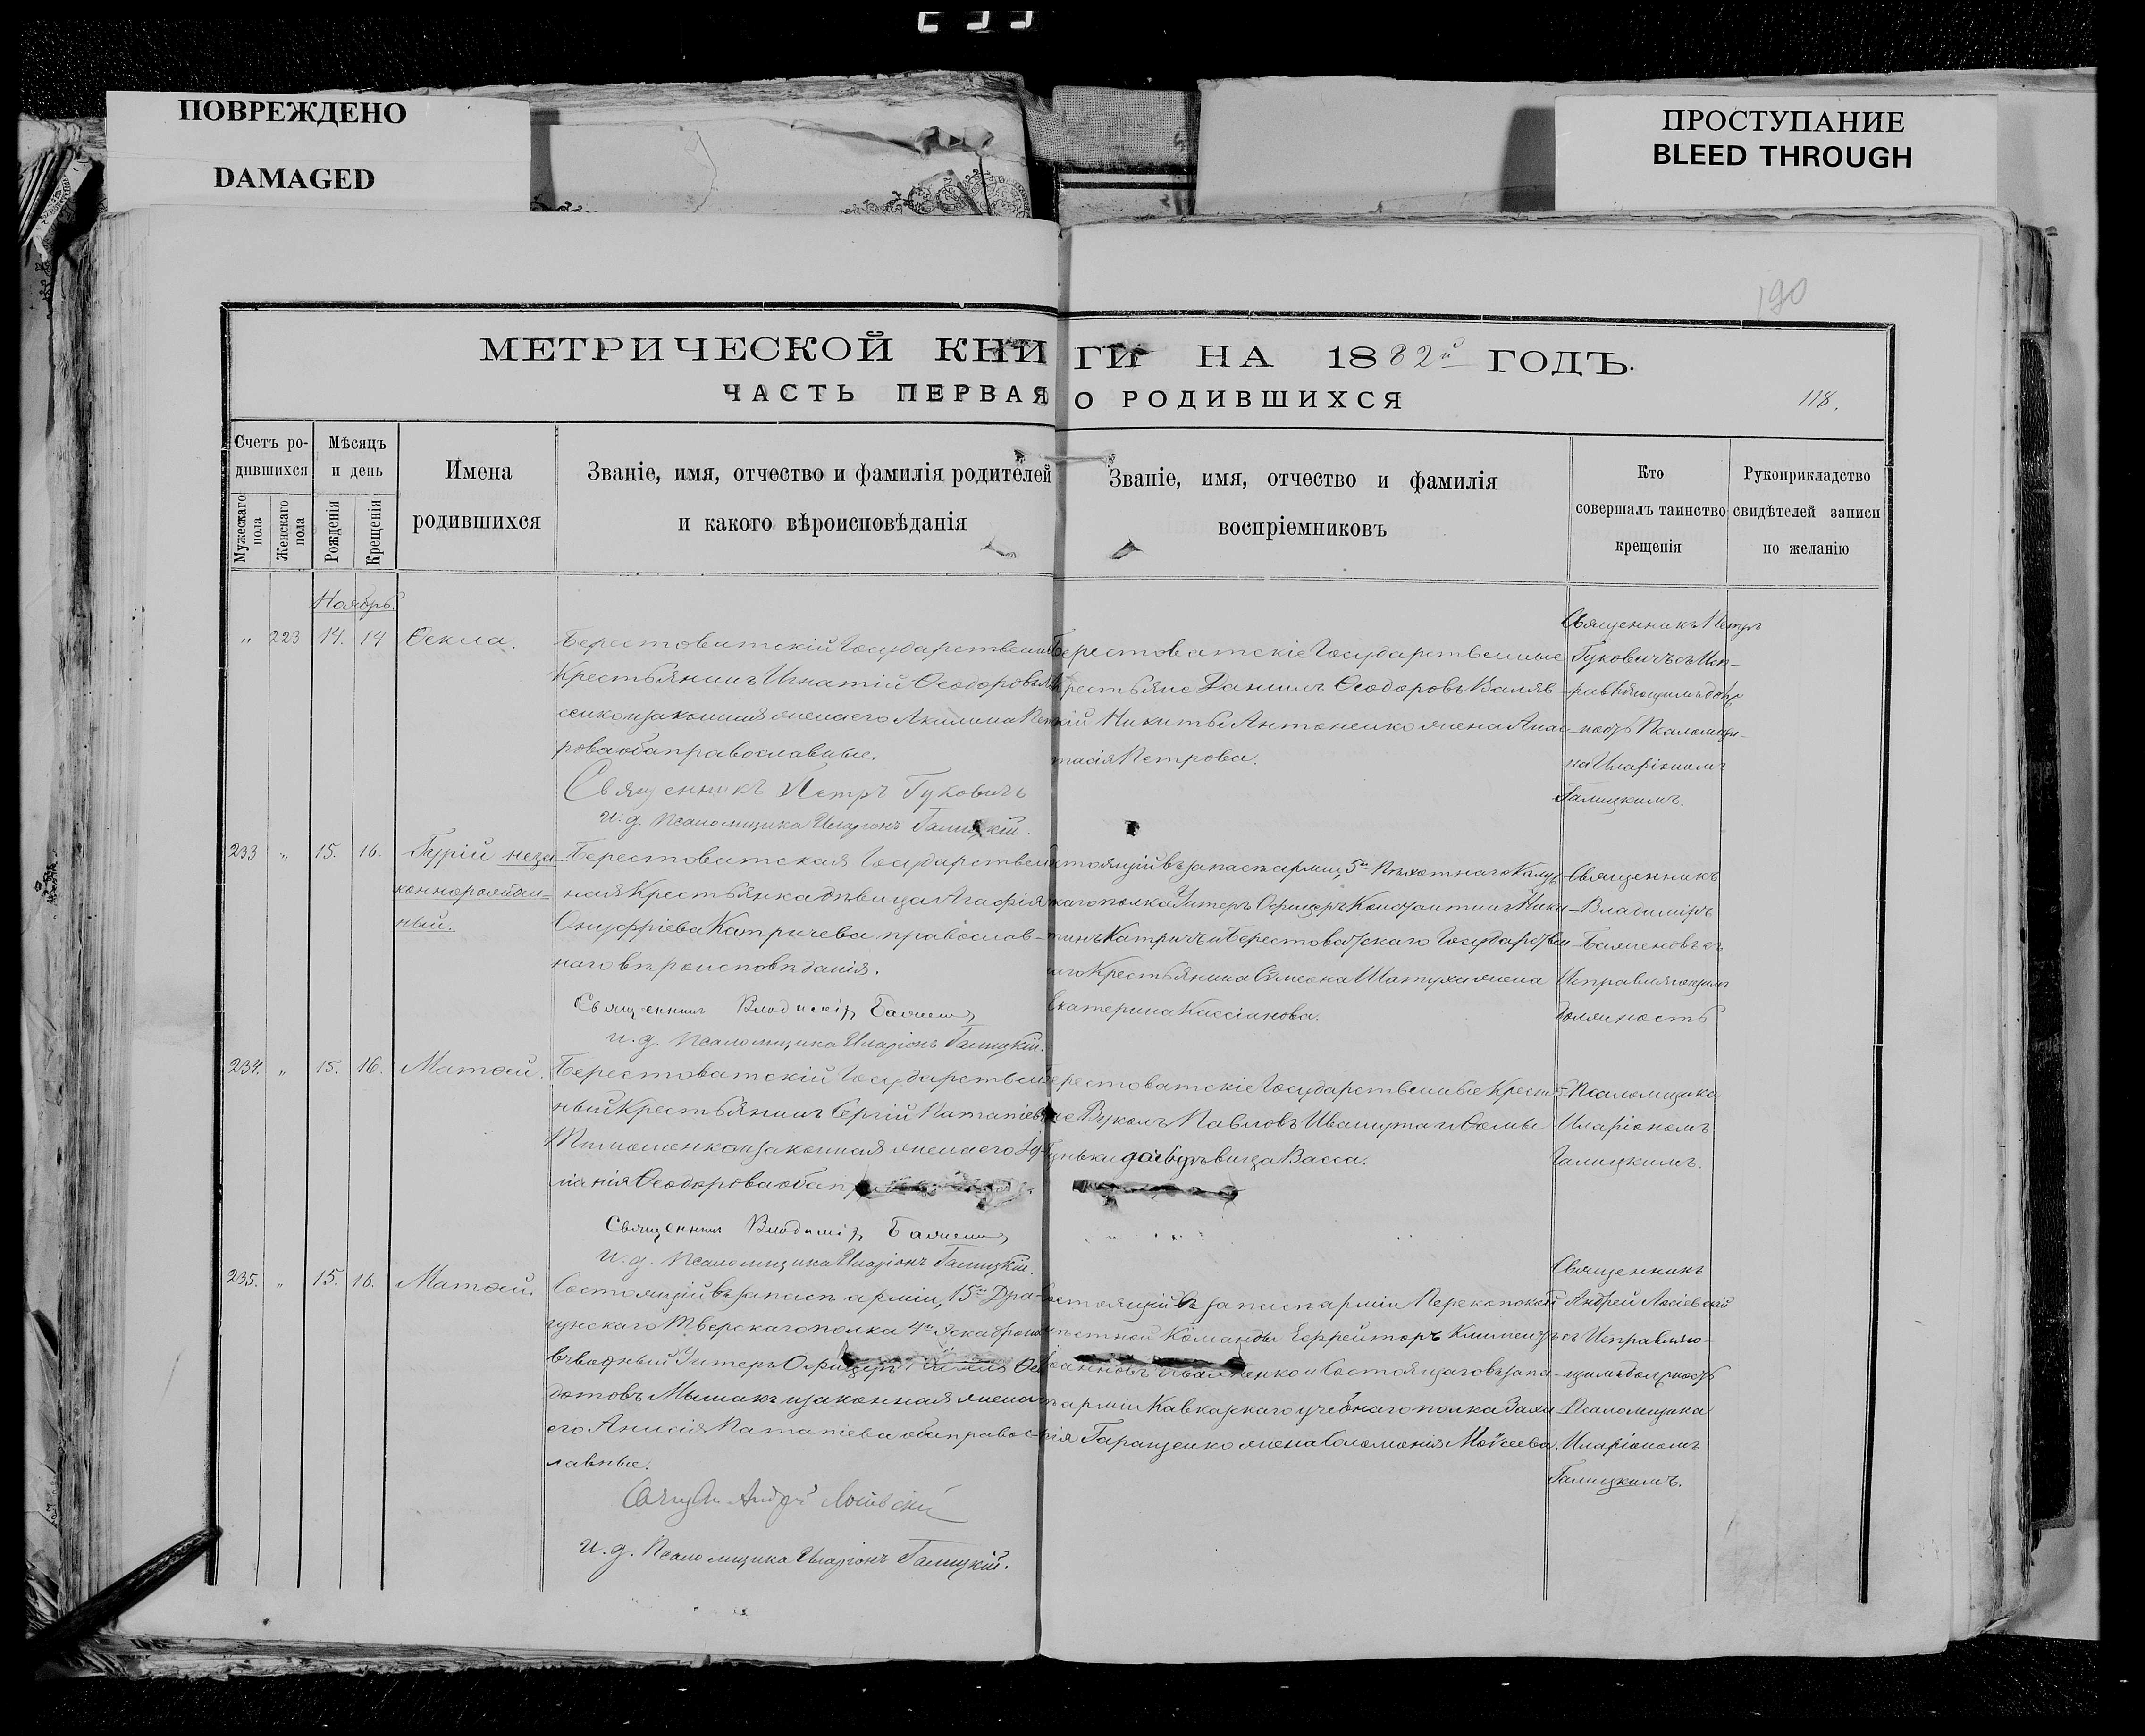 ПОВРЕЖДЕНО
DAMAGED
ПРОСТУПАНИЕ
BLEED THROUGH
190
МЕТРИЧЕСКОЙ КНИГИ НА 1882й ГОДЪ.
ЧАСТЬ ПЕРВАЯ О РОДИВШИХСЯ
118.
Счетъ ро-
дившихся
Мужескаго
пола
Женскаго
пола
Мѣсяцъ
и день
Рожденія
Крещенія
Имена
родившихся
Званіе, имя, отчество и фамилія родителей
и какого вѣроисповѣданія
Званіе, имя, отчество и фамилія
воспріемниковъ
Кто
совершалъ таинство
крещенія
Рукоприкладство
свидѣтелей записи
по желанію
Ноябрь.
„ 223 14. 14 Ѳекла.
Берестоватскій Государственный
Крестьянинъ Игнатій Ѳеодоровъ
законная жена его Акилина Пет
рова оба православные.
Священникъ Петръ Гуковичъ
и. д. Псаломщика Иларіонъ Галицкій.
Берестоватскіе Государственные
Крестьяне Даніилъ Ѳеодоровъ
Никиты Антоненко жена Анас
тасія Петрова.
Священникъ Петръ
Гуковичъ съ Исп-
равляющимъ долж
ность Псаломщи-
ка Иларіономъ
Галицкимъ.
233 „ 15. 16. Гурій неза-
коннорожден-
ный.
Берестоватская Государствен
ная Крестьянка дѣвица Агафія
Онуфріева Катричева православ-
наго вѣроисповѣданія.
Священникъ Владиміръ
и. д. Псаломщика Иларіонъ Галицкій.
Состоящій въ запасѣ арміи, 5го Пѣхотнаго Калуж
скаго полка Унтеръ Офицеръ Константинъ Ники
тинъ Катричъ и Берестоватскаго Государствен
наго Крестьянина Симеона Шатуха жена
Екатерина Кассіанова.
Священникъ
Владиміръ
съ
Исправляющимъ
должность
234. „ 15. 16. Матѳей.
Берестоватскій Государствен
ный Крестьянинъ Сергій Патапіевъ
Тимошенко и законная жена его
Ѳеодорова оба
Священникъ Владиміръ
и. д. Псаломщика Иларіонъ Галицкій.
Берестоватскіе Государственные Кресть
яне Вуколъ Павловъ Ивашута и Ѳомы
дочь дѣвица Васса.
Псаломщика
Иларіономъ
Галицкимъ.
235. „ 15. 16. Матѳей.
Состоящій въ запасѣ арміи, 15го Дра-
гунскаго Тверскаго полка 4го эскадрона
взводный Унтеръ Офицеръ
дотовъ Мышакъ и законная жена
его Анисія Патапіева оба правос-
лавные.
Андрей
и. д. Псаломщика Иларіонъ Галицкій.
Состоящій въ запасѣ арміи Перекопской
мѣстной Команды Ефрейторъ Климентъ
Іоанновъ и Состоящаго въ запа
сѣ арміи Кавказскаго учебнаго полка Заха
рія Гаращенко жена Соломонія Моѵсеева.
Священникъ
Андрей Лосіевскій
съ Исправляю-
щимъ должность
Псаломщика
Иларіономъ
Галицкимъ.